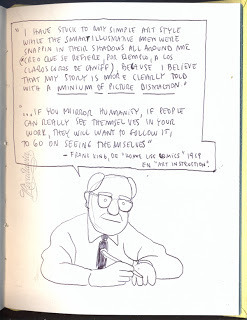 "I HAVE STUCK TO MY SIMPLE ART STYLE
WHILE THE SMART ILLUSTRATIVE MEN WERE
SNAPPIN IN THEIR SHADOWS ALL AROUND ME
(CREO QUE SE REFIERE, POR EJEMPLO, A LOS
CLAROSCUROS DE CANIFF), BECAUSE I BELIEVE
THAT MY STORY IS MORE CLEARLY TOLD
WITH A MINIUM OF PICTURE DISTRACTION"
"... IF YOU MIRROR HUMANITY, IF PEOPLE
CAN REALLY SEE THEMSELVES IN YOUR
WORK, THEY WILL WANT TO FOLLOW IT,
TO GO ON SEEING THEMSELVES"
- FRANK KING, DE 1959
EN "ART INSTRUCTION".